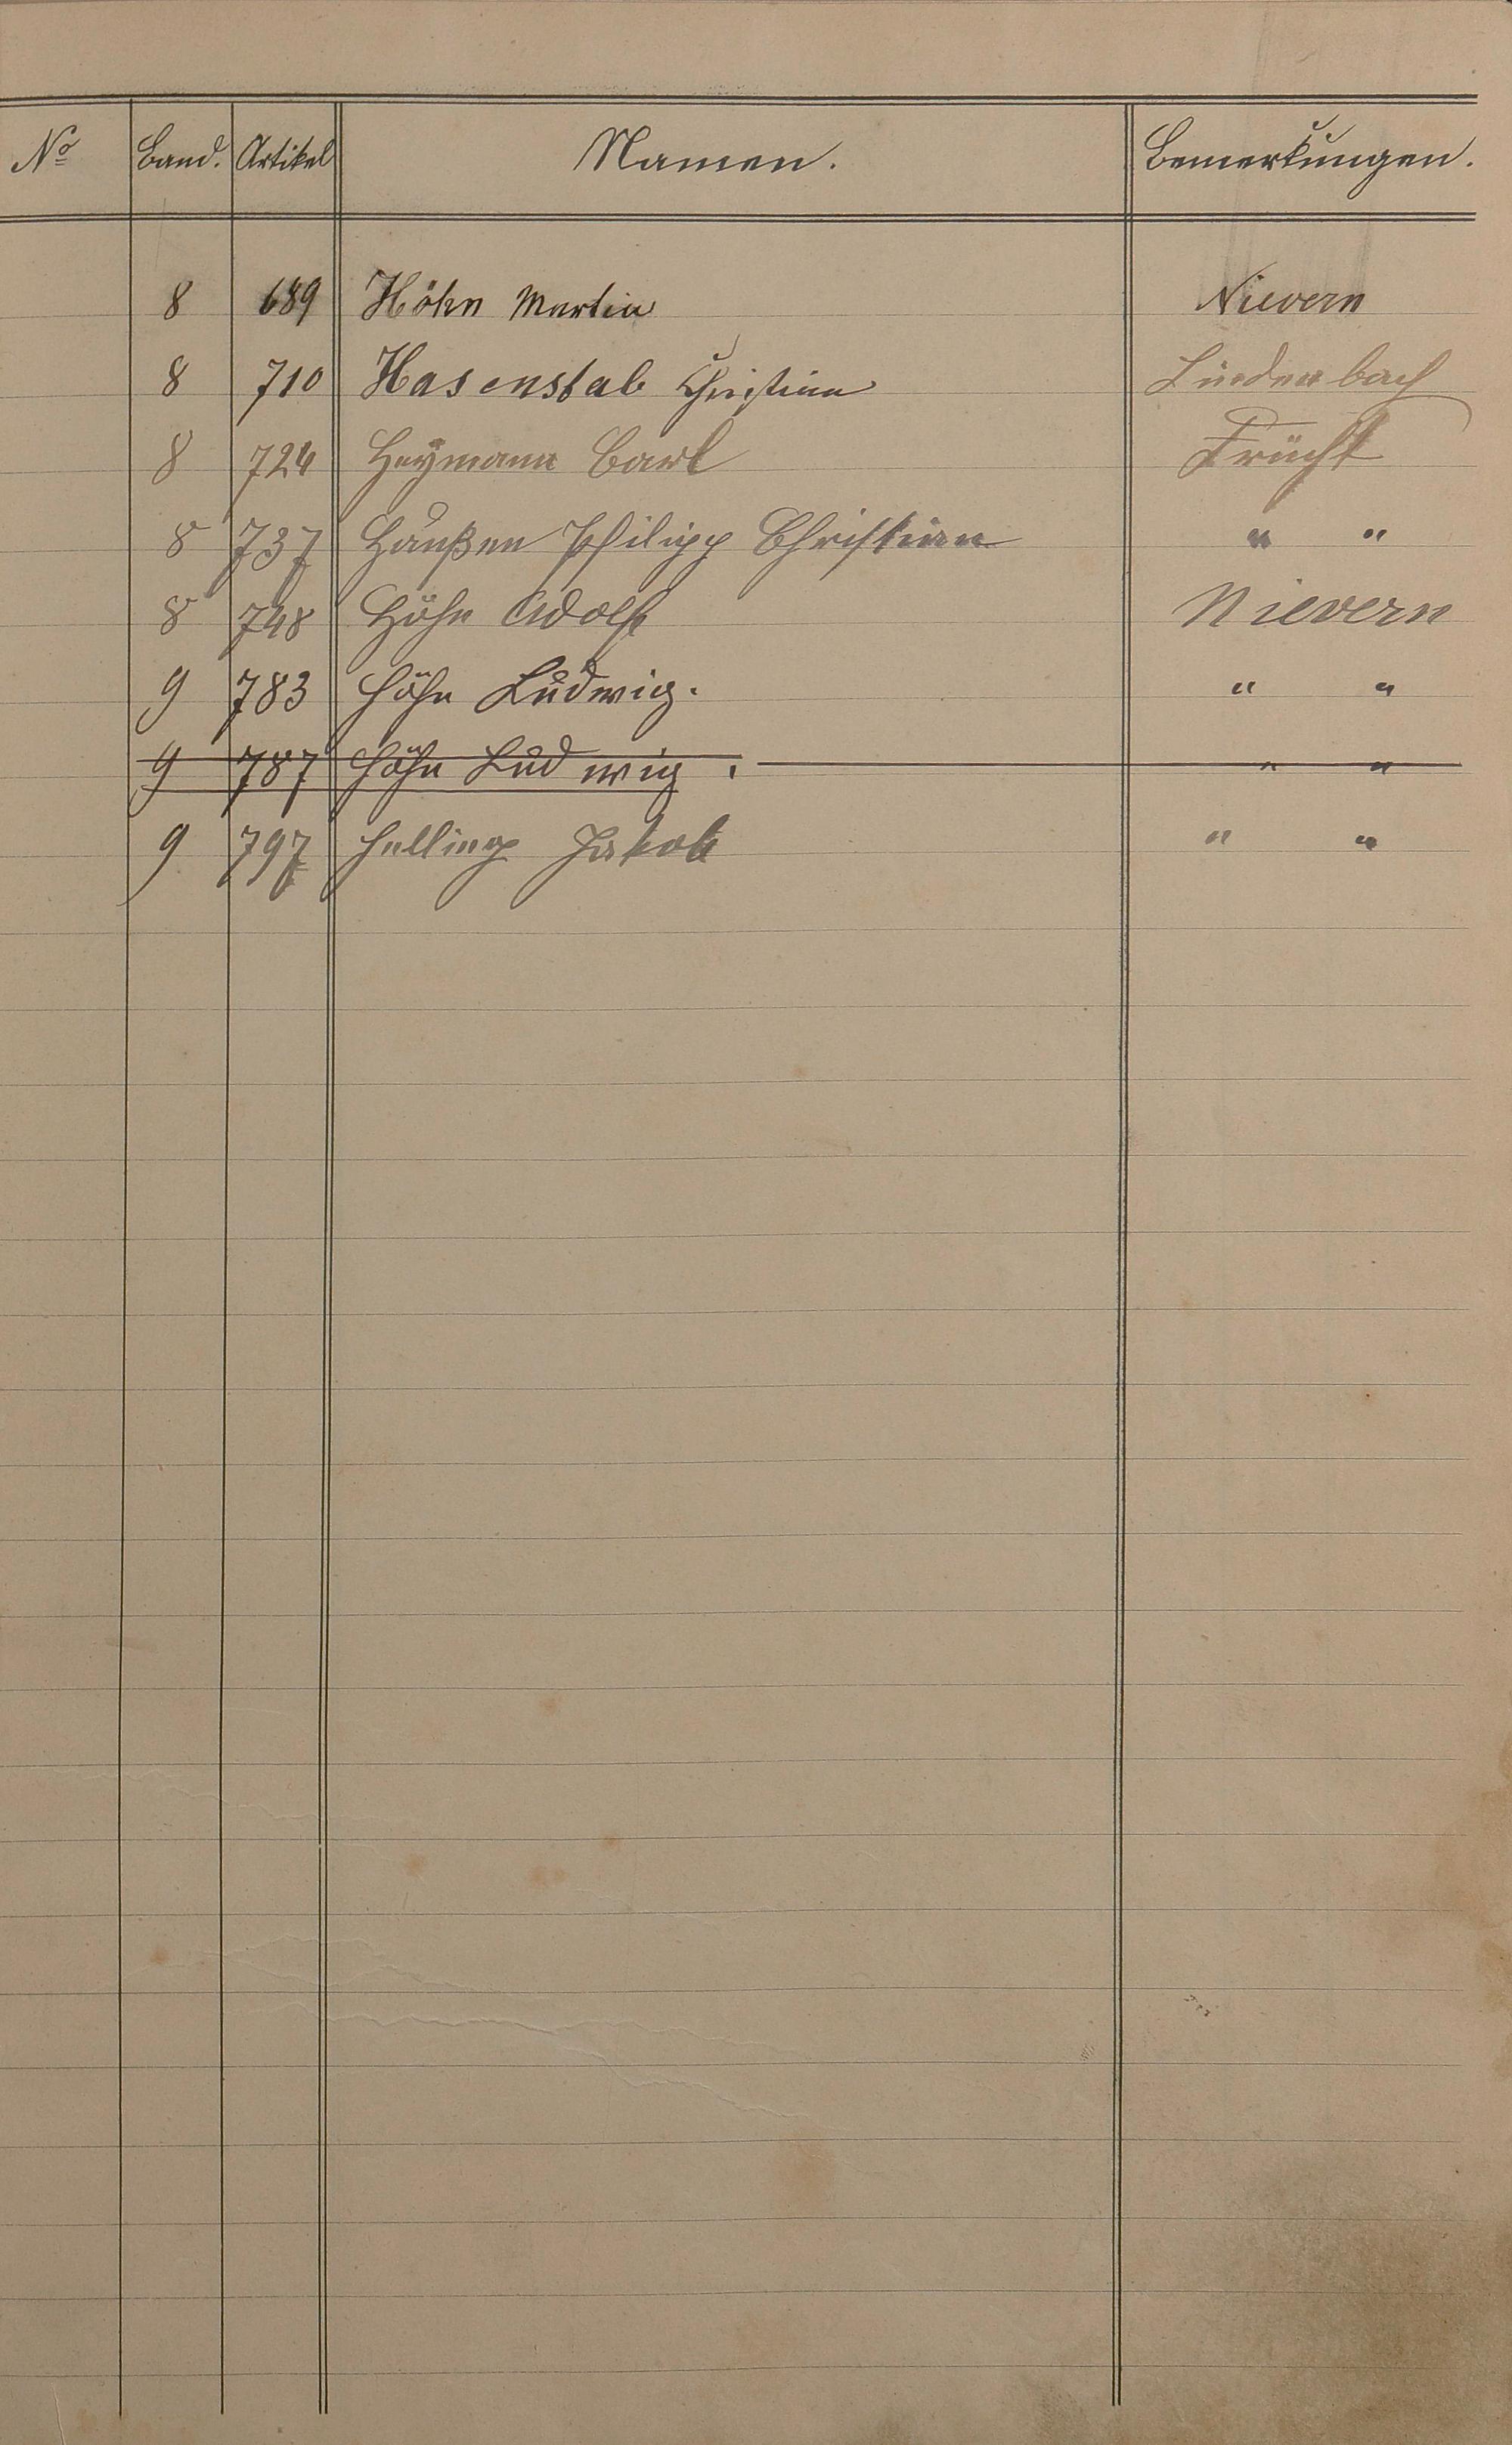 No Band. Artikel Namen. Bemerkungen.
8 689 Höhn Martin Nievern
8 710 Hasenstab Christian Lindenbach
8 724 Heymann Carl Frücht
8 737 Haußen Philipp Christian " "
8 748 Höhn Adolf Nievern
9 783 Höhn Ludwig. " "
9 787 Höhn Ludwig. " "
9 797 Helling Jakob " "